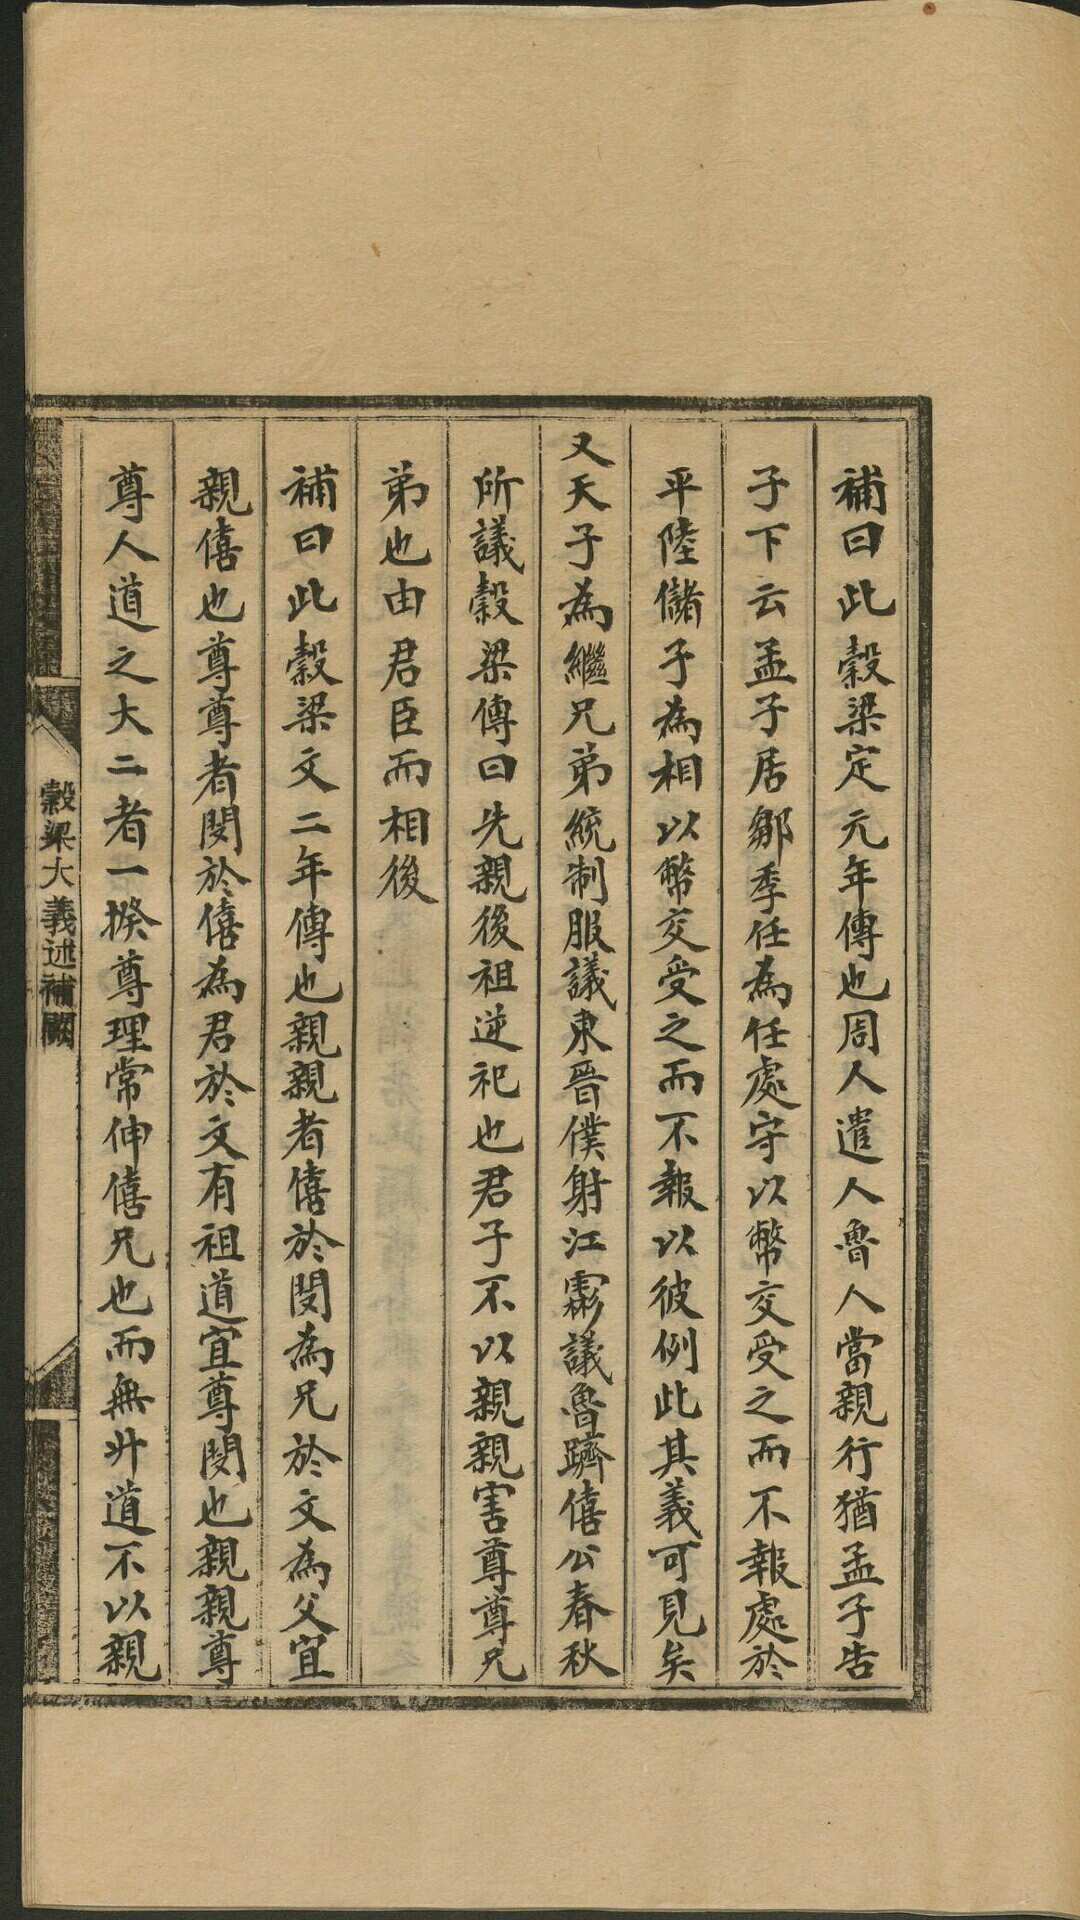 補曰此穀梁定元年傳也周人遣人魯人當親行猶孟子告
子下云孟子居鄒季任為任處守以幣交受之而不報處於
平陸儲子為相以幣交受之而不報以彼例此其義可見矣
又天子為繼兄弟統制服議東晉僕射江霦議魯躋僖公春秋
所議穀梁傳曰先親後祖逆祀也君子不以親親害尊尊兄
弟也由君臣而相後
補曰此穀梁文二年傳也親親者僖於閔為兄於文為父宜
親僖也尊尊者閔於僖為君於文有祖道宜尊閔也親親尊
尊人道之大二者一揆尊理常伸僖兄也而無廾道不以親
穀梁大義述補闕